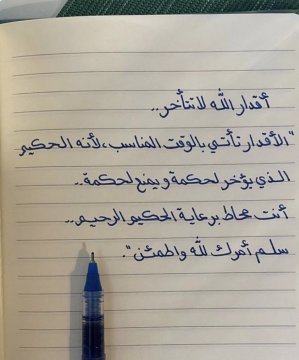 أقدار الله لا تتأخر..
"الأقدار تأتي بالوقت المناسب، لأنه الحكيم
الذي يؤخر لحكمة و يمنع لحكمة..
أنت محاط برعاية الحكيم الرحيم..
سلم أمرك لله واطمئن".